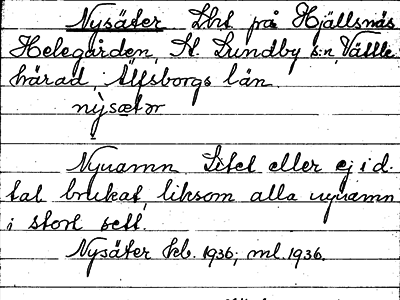 Nysäter Lht på Hjällsnäs
Helegården, St. Lundby s:n, Vättle
härad, Älfsborgs län.
nỳsætər
Nynamn. Litet eller ej i d.
tal brukat, liksom alla nynamn
i stort sett.
Nysäter kb. 1936; ml. 1936.